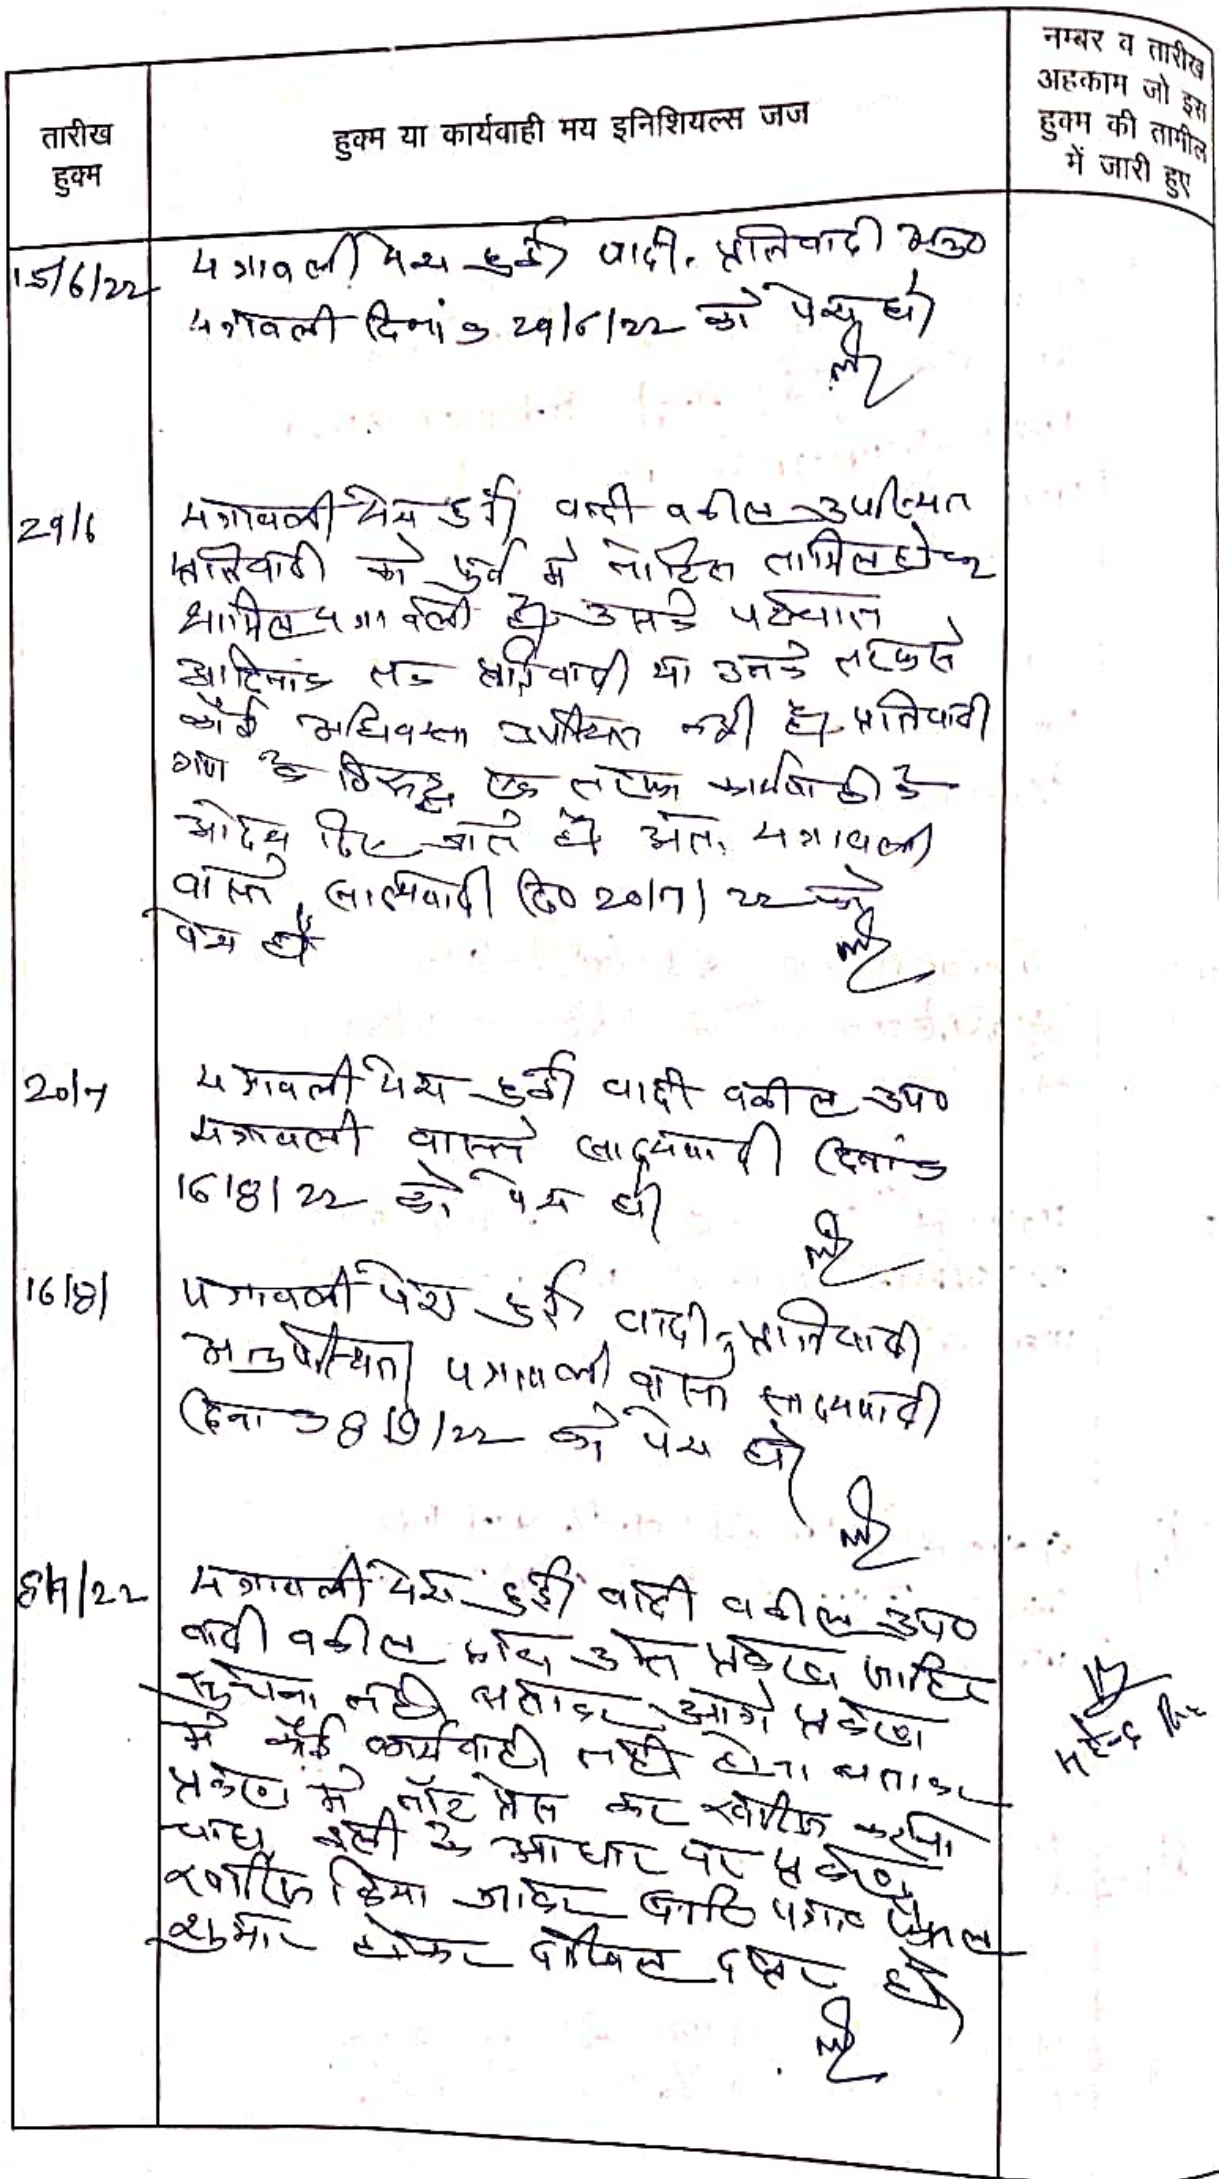 तारीख
हुक्म
हुक्म या कार्यवाही मय इनिशियल्स जज
नम्बर व तारीख
अहकाम जो इस
हुक्म की तामील
में जारी हुए
15/6/22
पत्रावली पेश हुई वादी, प्रतिवादी अनु०
पत्रावली दिनांक 29/6/22 को पेश हो
29/6
पत्रावली पेश हुई वादी वकील उपस्थित
प्रतिवादी को पुर्व मे नोटिस तामिल होकर
शामिल पत्रावली है उसके पश्चात
आदिनांक तक प्रतिवादी या उनके तरफ से
कोई अधिवक्ता उपस्थित नही है प्रतिवादी
गण के विरूद्ध एक तरफा कार्यवाही के
आदेश दिए जाते है अत. पत्रावली
वास्ते साक्ष्यवादी दि० 20/7/22 को
पेश हो
20/7
पत्रावली पेश हुई वादी वकील उप०
पत्रावली वास्ते साक्ष्यवादी दिनांक
16/8/22 को पेश हो
16/8/
पत्रावली पेश हुई वादी, प्रतिवादी
अनुपस्थित पत्रावली वास्ते साक्ष्यवादी
दिनांक 8/9/22 को पेश हो
8/9/22
पत्रावली पेश हुई वादी वकील उप०
वादी वकील उक्त प्रकरण
सुचना नही बताकर आगे प्रकरण
मे कोई कार्यवाही नही होना बताकर
प्रकरण मे नॉट प्रेस कर खारिज करना
चाहा इसी के आधार पर प्रकरण
खारिज किया जाकर पत्रा० फैसल
शुमार होकर दाखिल दफ्तर हो